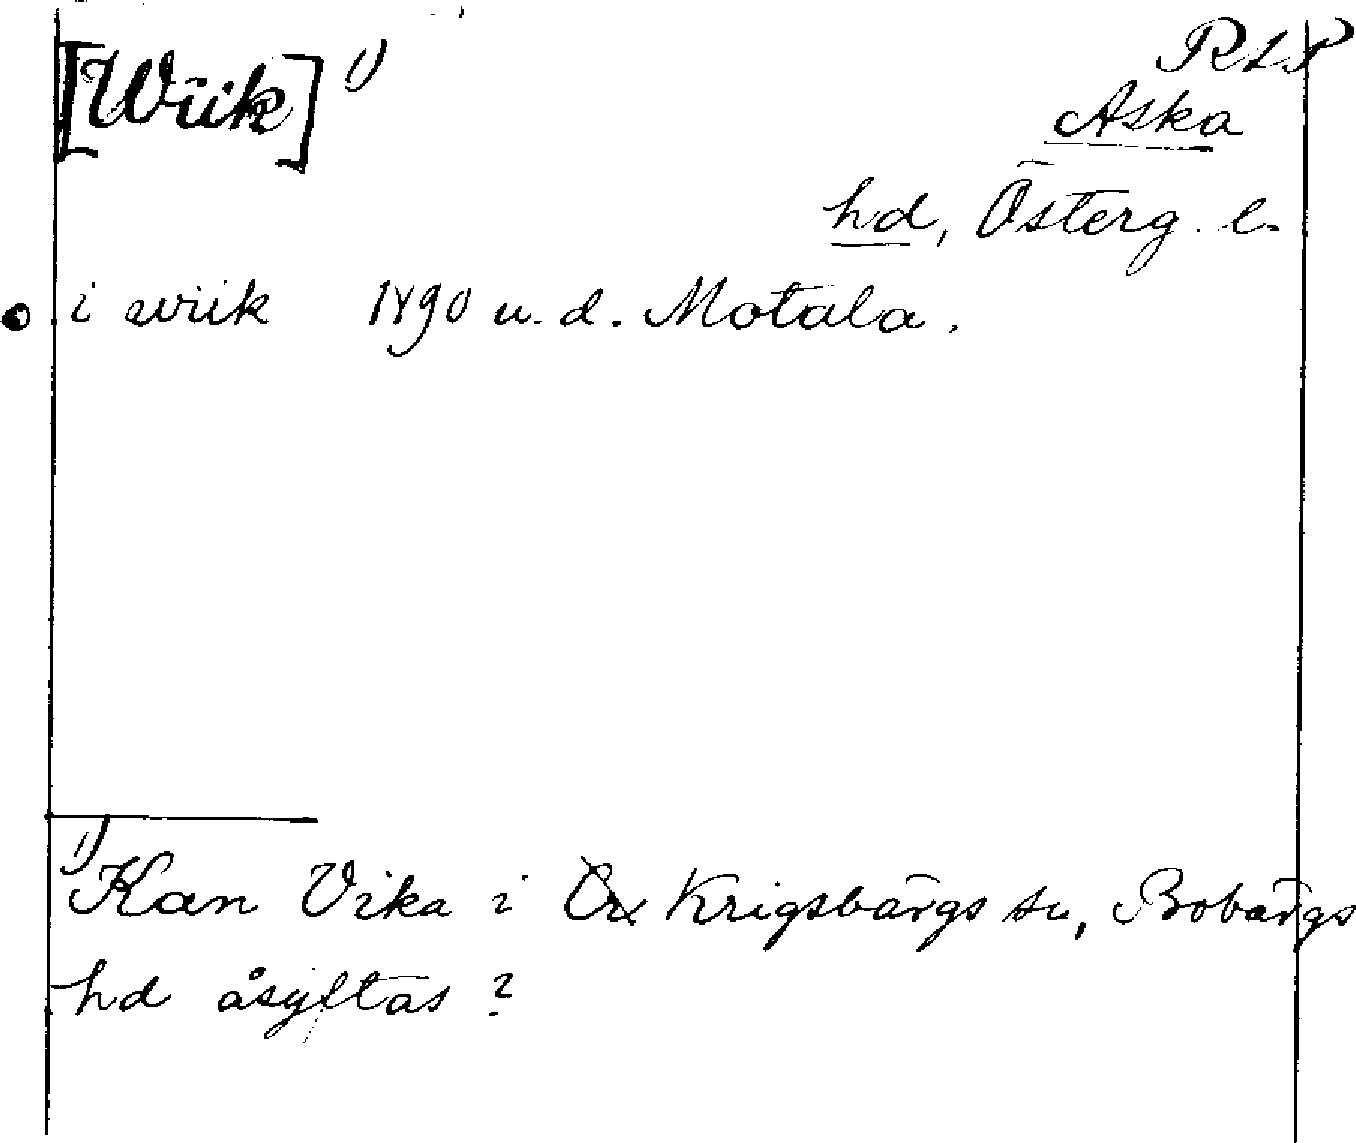 [Wiik] 1)
RLP
Aska
hd, Österg. l.
i wiik 1490 u. d. Motala.
1) Kan Vika i Krigsbärgs sn, Bobärgs
hd åsyftas ?